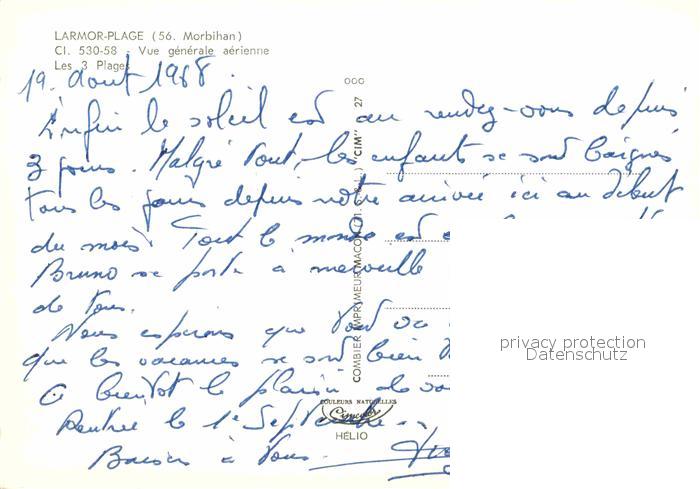 LARMOR-PLAGE (56. Morbihan)
Cl. 530-58 - Vue générale aérienne
Les 3 Plages
19. Aout 1968.
Enfin le soleil est au rendez-vous depuis
3 jours. Malgré tout, les enfants se sont baignés
tous les jours depuis notre arrivée ici au début
du mois. Tout le monde est
Bruno se porte à merveille
de tous.
Nous espérons que tout va
que les vacances se sont bien
A bientôt le plaisir de vo
Rentrée le 1er Septembre..
Baisers à tous.
COMBIER IMPRIMEUR MACON "CIM" 27
COULEURS NATURELLES
Cimcolor
HÉLIO
privacy protection
Datenschutz